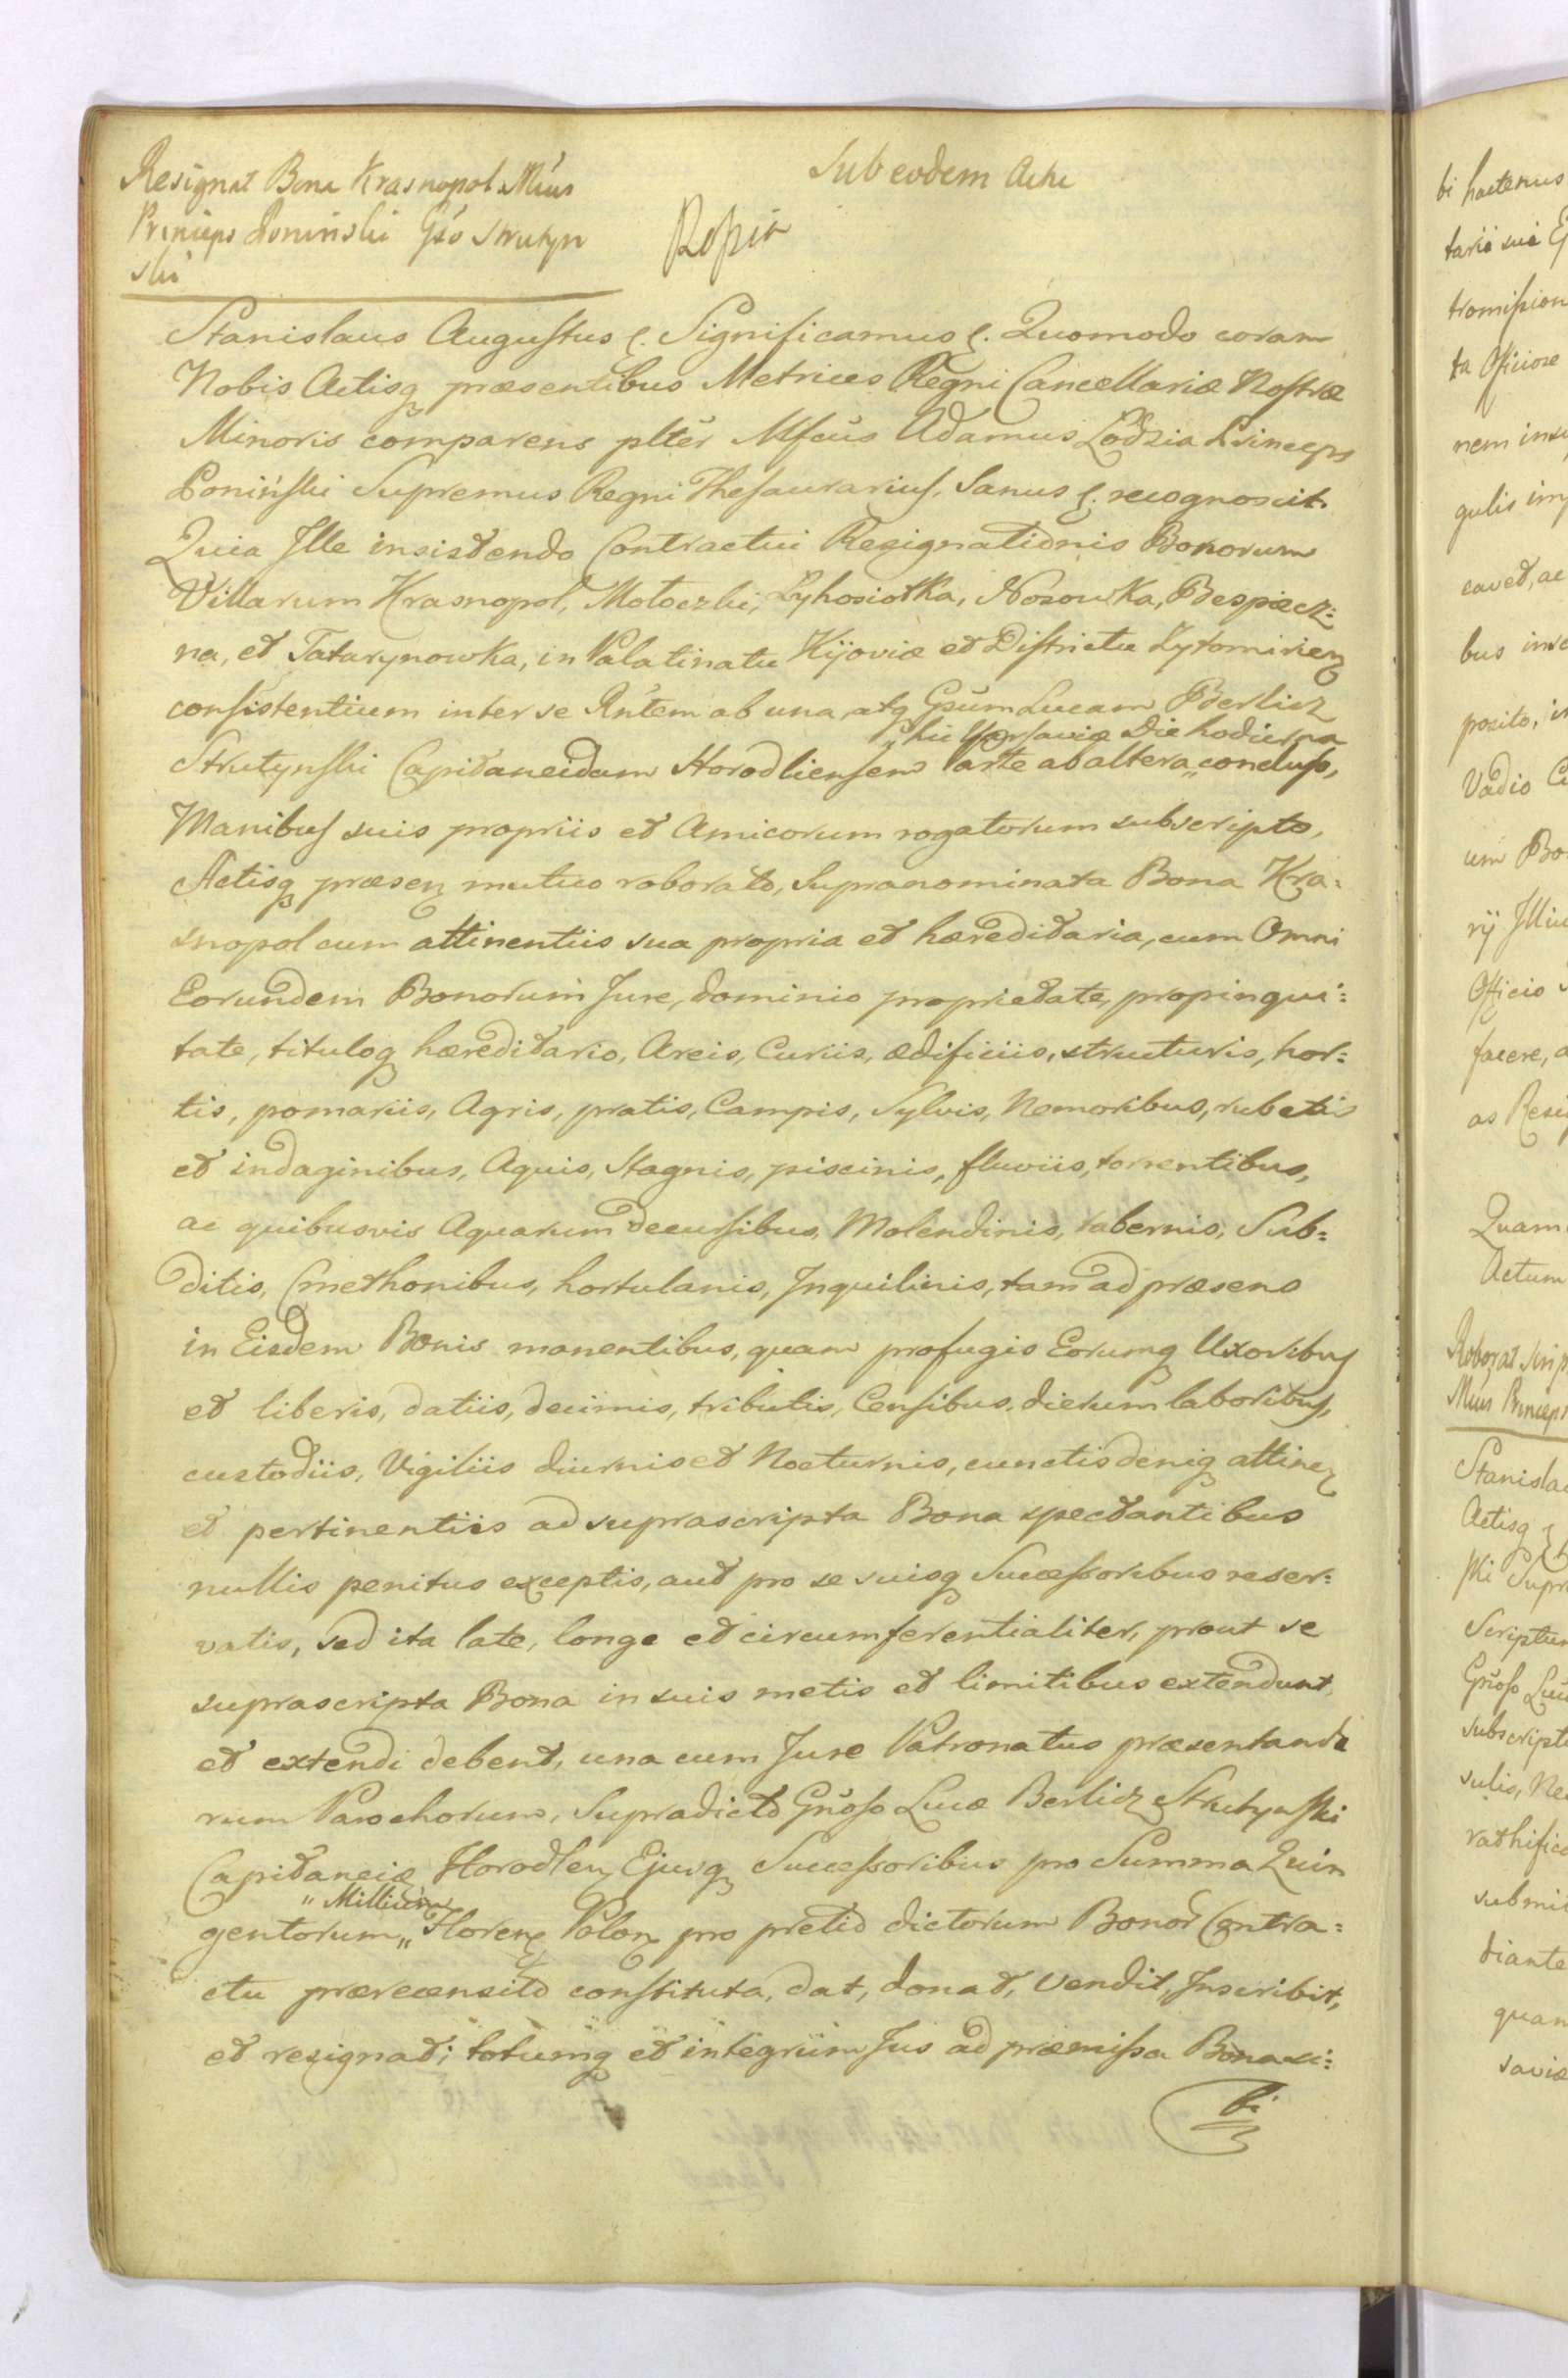 Sub eodem Actu
Resignat Bona Krasnopol Mcus
Princeps Poninski Gso Strutyn
ski
Kopia
Stanislaus Augustus &. Significamus &. Quomodo coram
Nobis Actisq præsentibus Metrices Regni Cancellariæ Nostræ
Minoris comparens plter Mfcus Adamus Lodzia Princeps
Poniński Supremus Regni Thesaurarius, Sanus &. recognovit.
Quia Ille insistendo Contractui Resignationis Bonorum
Villarum Krasnopol, Motoczki, Lyhosiotka, Nosowka, Bespiecz:
na, et Tatarynowka, in Palatinatu Kijoviæ et Districtu Zytomirien
consistentium inter se Rntem ab una, atq Gsum Lucam Berlicz
Strutynski Capitaneidam Horodliensem Parte ab altera „ hic Varsaviæ Die hodierna „ concluso,
Manibus suis propriis et Amicorum rogatorum subscripto,
Actisq præsen mutuo roborato, Supranominata Bona Kra:
snopol cum attinentiis sua propria et hæreditaria, cum Omni
Eorundem Bonorum Jure, dominio proprietate, propinqui:
tate, tituloq hæreditario, Areis, Curiis, ædificiis, structuris, hor:
tis, pomariis, Agris, pratis, Campis, Sylvis, Nemoribus, rubetis
et indaginibus, Aquis, Stagnis, piscinis, fluviis, torrentibus,
ac quibusvis Aquarum decursibus, Molendinis, tabernis, Sub:
ditis, Cmethonibus, hortulanis, Inquilinis, tam ad præsens
in Eisdem Bonis manentibus, quam profugis Eorumq Uxoribus
et liberis, datiis, decimis, tributis, Censibus, dierum laboribus,
custodiis, Vigiliis diurnis et Nocturnis, cunctis deniq attinen
et pertinentiis ad suprascripta Bona spectantibus
nullis penitus exceptis, aut pro se suisq Successoribus reser:
vatis, sed ita late, longe et circumferentialiter, prout se
suprascripta Bona in suis metis et limitibus extendunt
et extendi debent, una cum Jure Patronatus præsentando
rum Parochorum, Supradicto Gnoso Lucæ Berlicz Strutynski
Capitaneidæ Horodlen, Ejusq Successoribus pro Summa Quin
gentorum „ Millium „ Floren Polon pro pretio dictorum Bonor Contra:
ctu præreconsito constituta, dat, donat, Vendit, Inscribit,
et resignat; totumq et integrum Jus ad præmissa Bona si:
bi
bi hactenus
tario sui
tromission
ta Officiose
nem
gulis imp
cavet, ac
bus
posito, 
Vadio
um Bo
rij Illiu
Officio
facere,
as Resig
Quam
Actum
Roborat Scrip
Mcus Princeps
Stanislau
Actisq
ski Supre
Scriptum
Gnoso Luc
subscripto
sulis, Ne
rathific
submit
diante
quan
saviæ